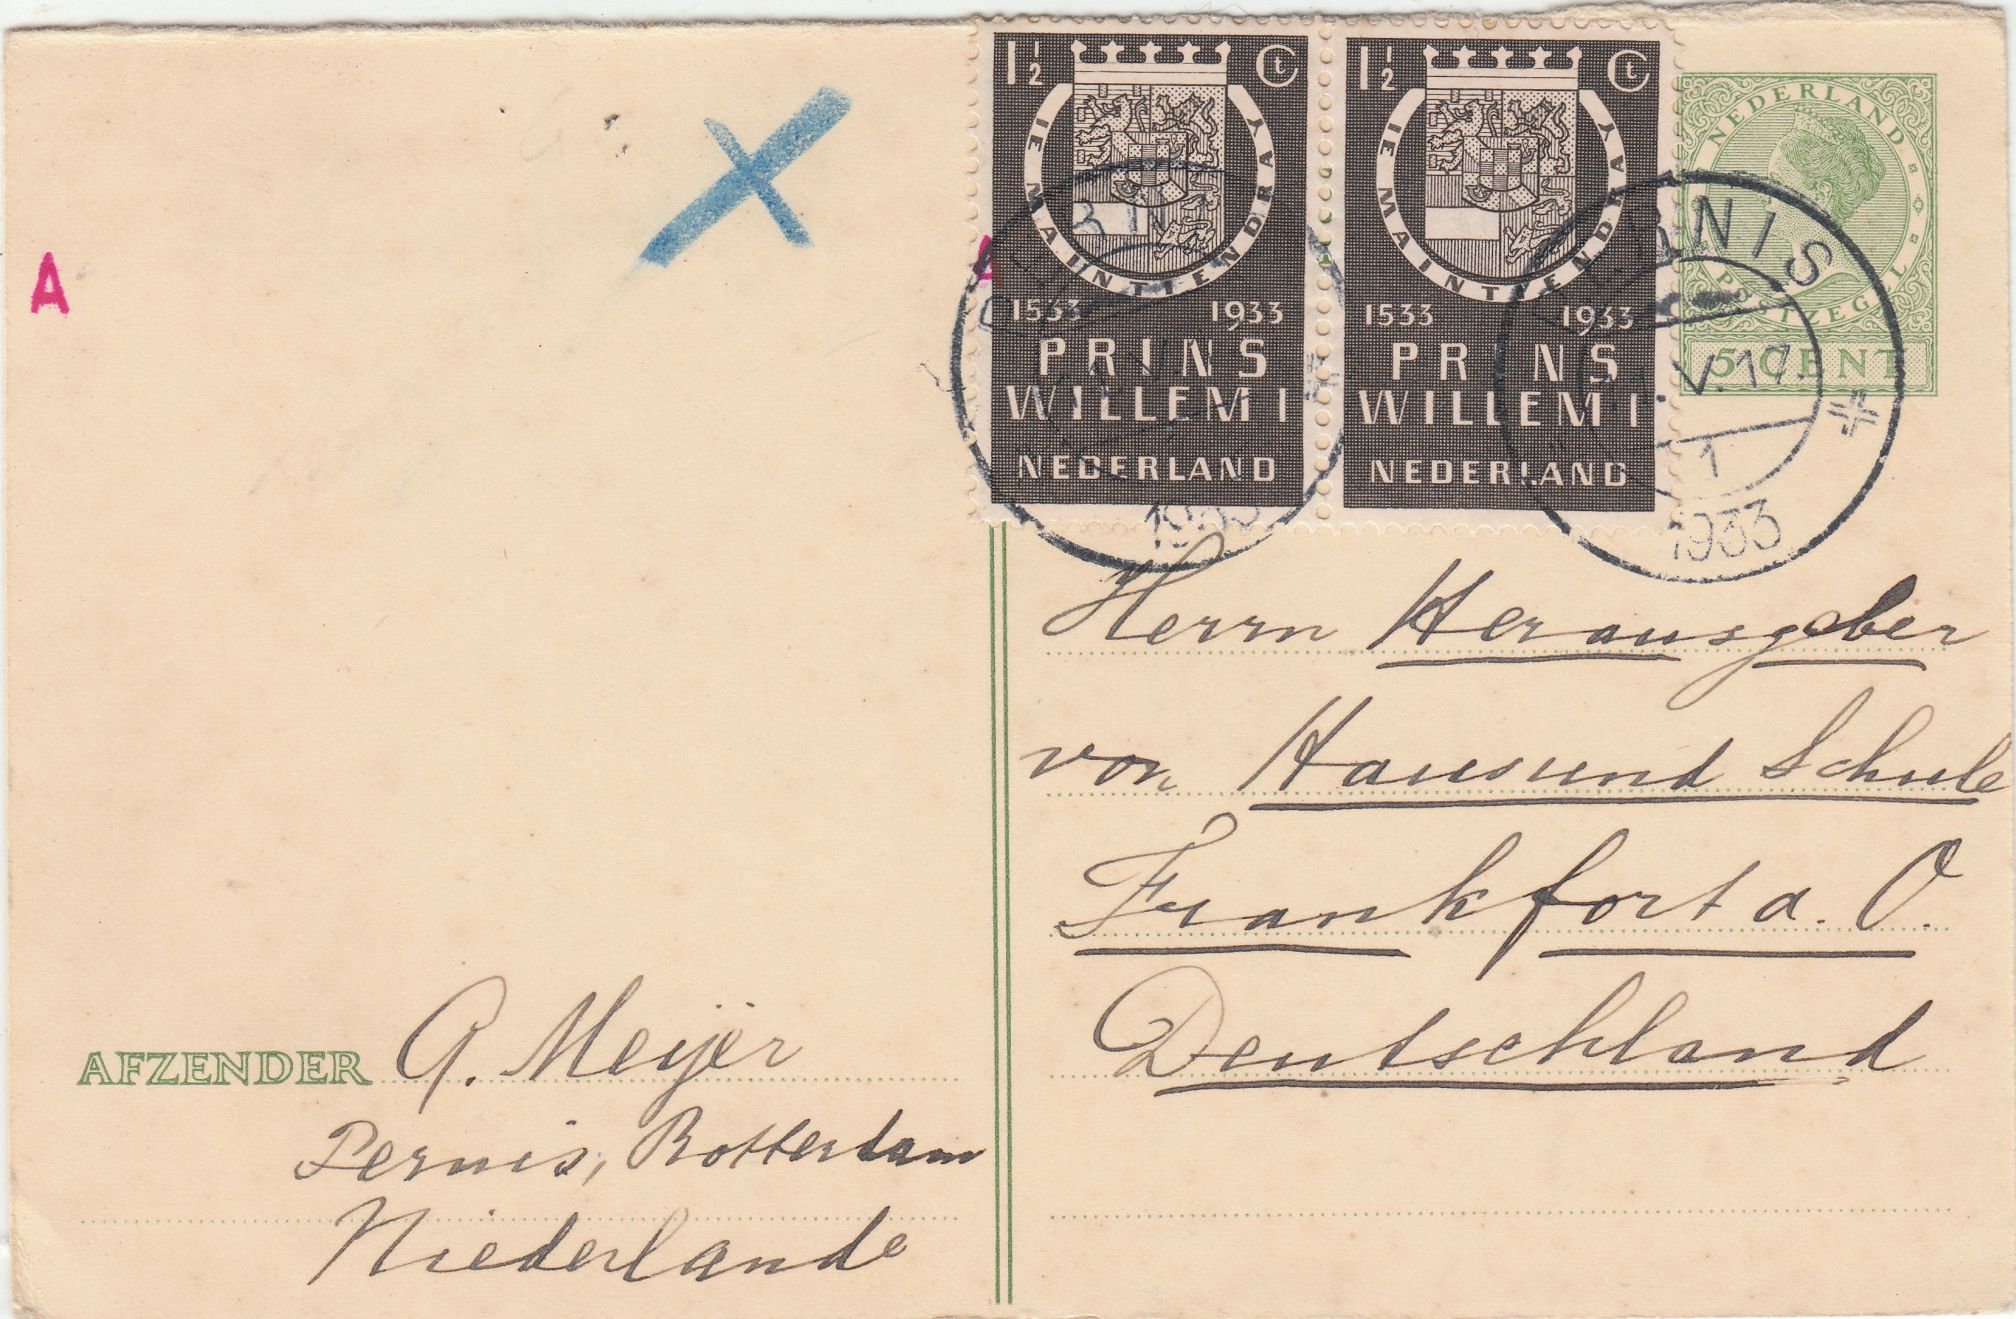 1½ Ct
JE MAINTIENDRAY
1533 1933
PRINS
WILLEM I
NEDERLAND
1½ Ct
JE MAINTIENDRAY
1533 1933
PRINS
WILLEM I
NEDERLAND
NEDERLAND
POSTZEGEL
5 CENT
PERNIS
V.17.
1
1933
1933
A
A
Herrn Herausgeber
von Haus und Schule
Frankfort a. O.
Deutschland
AFZENDER A. Meijer
Pernis, Rotterdam
Niederlande